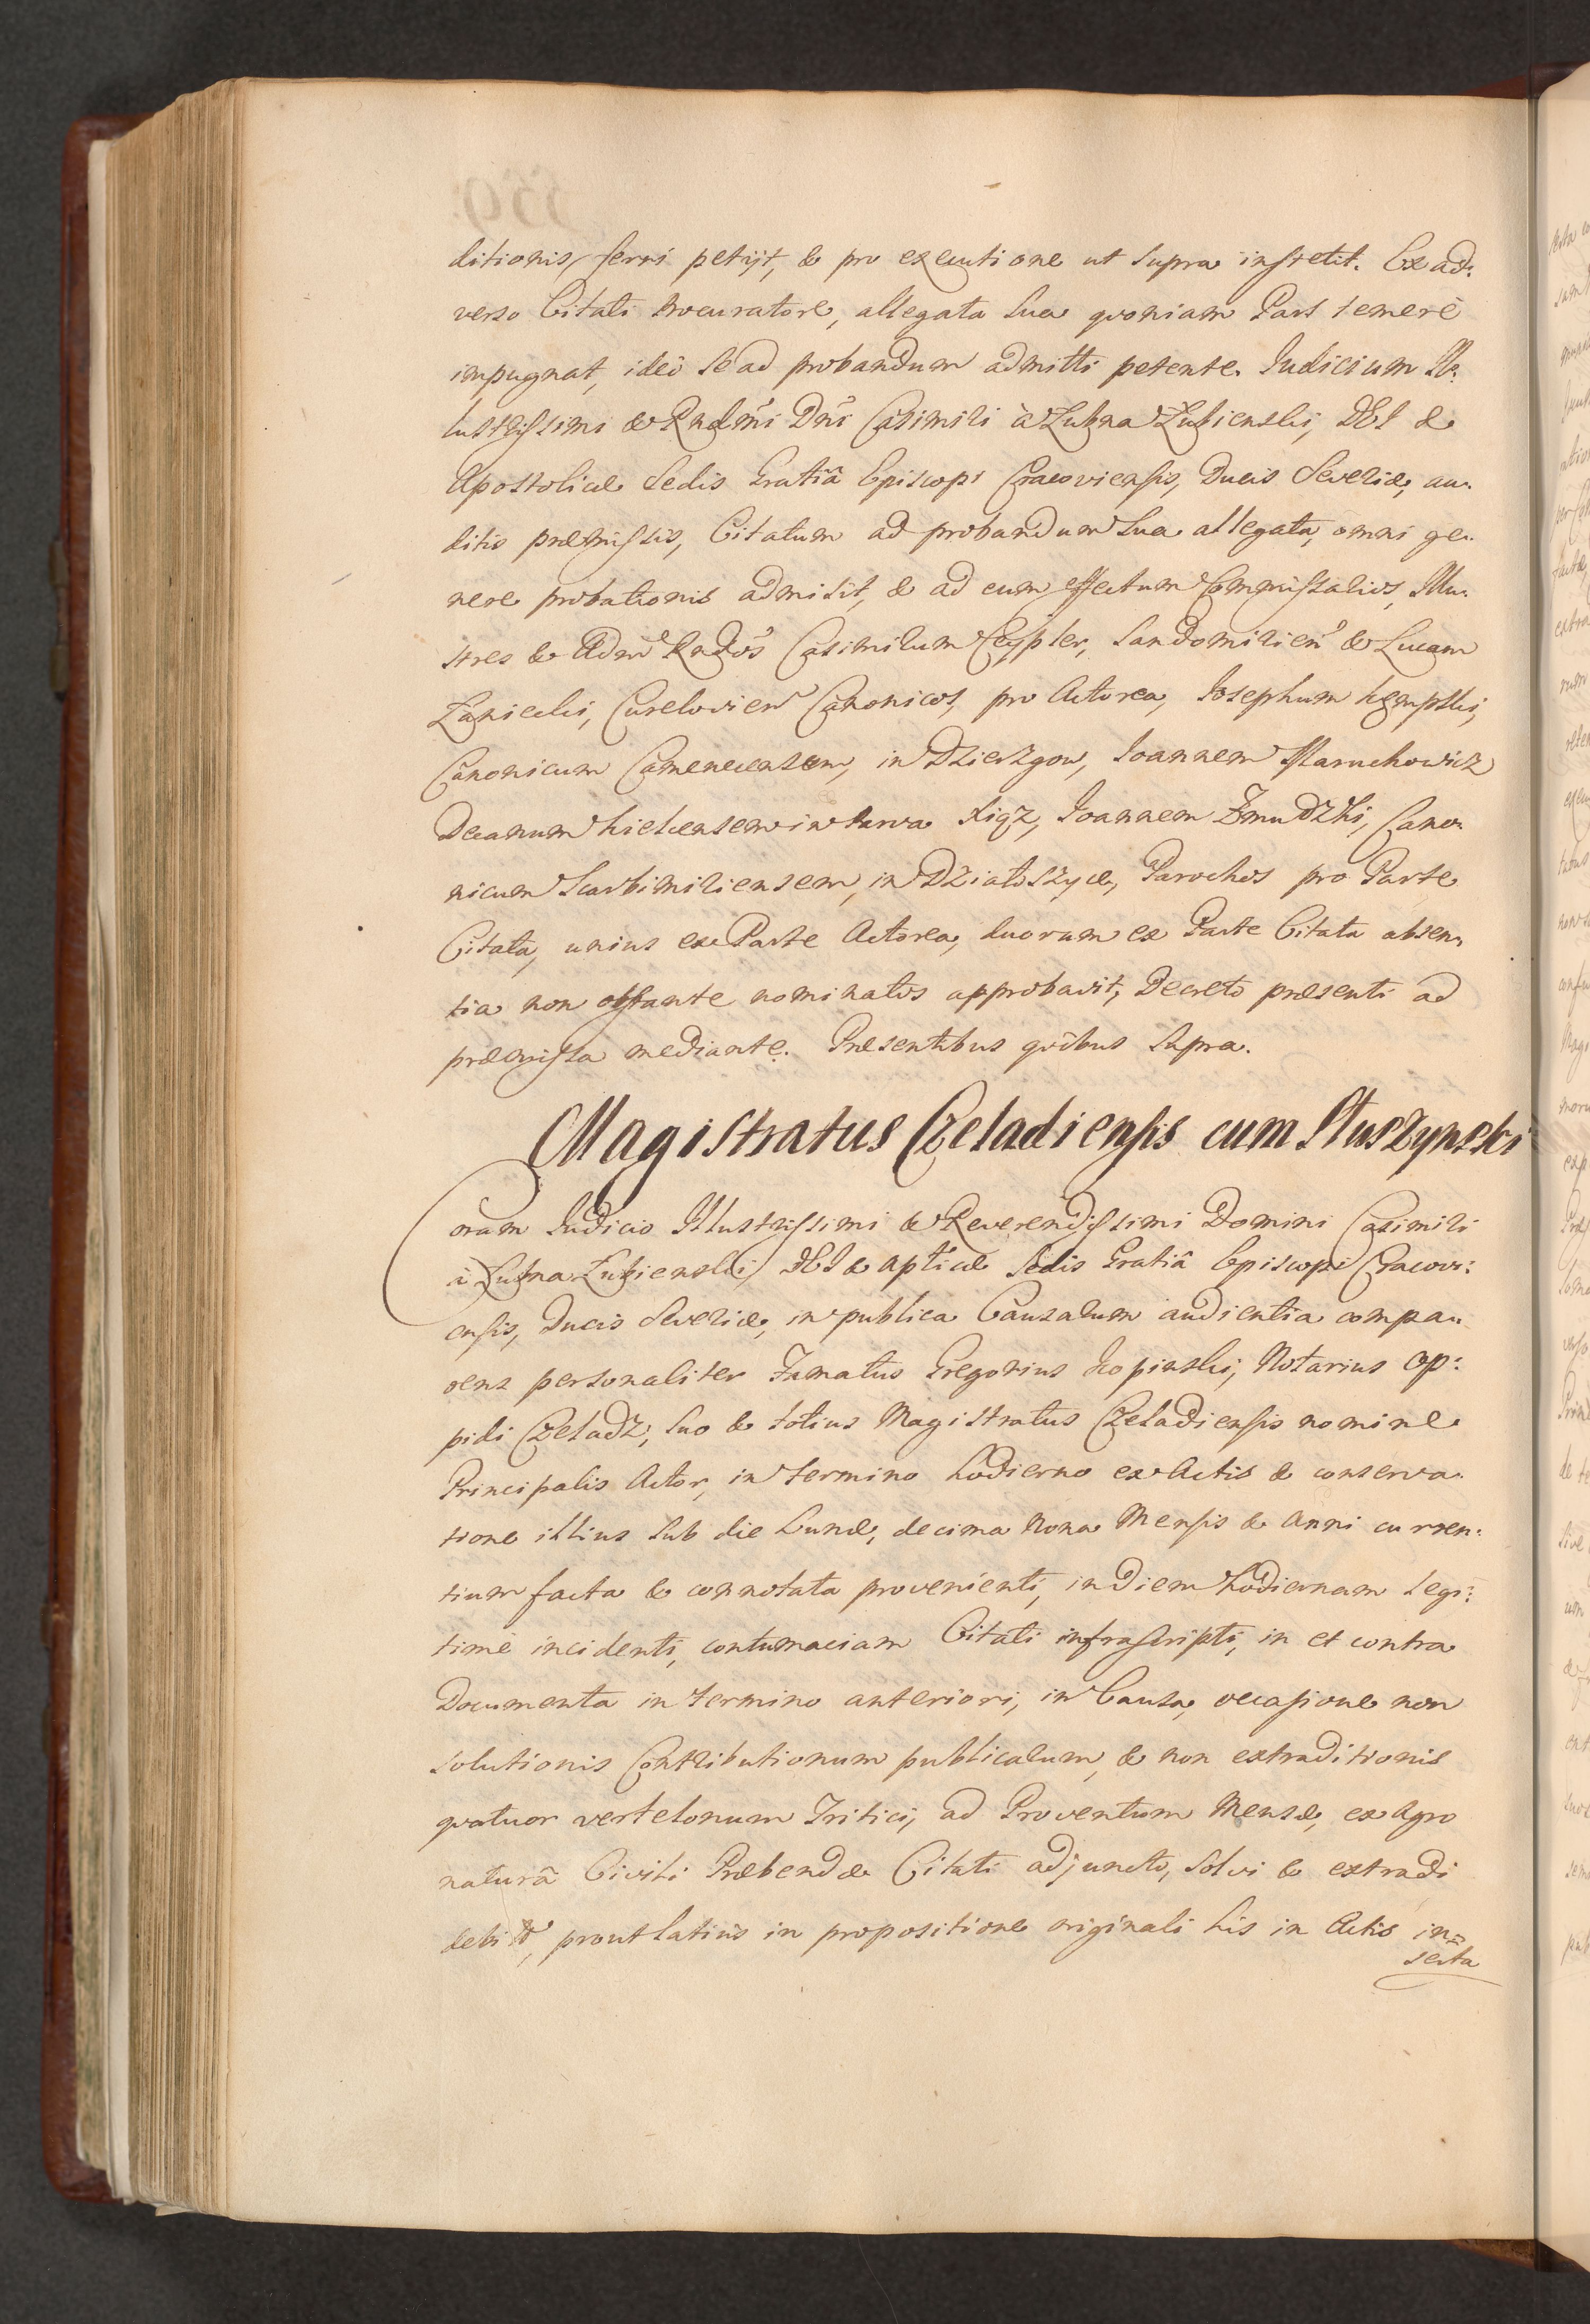 ditionis, ferri petijt, & pro executione ut supra institit. Ex ad:
verso Citati Procuratore, allegata sua quoniam Pars temerè
impugnat, ideò se ad probandum admitti petente. Judicium Il:
lustrissimi & Rndmi Dni Casimiri à Łubna Łubienski, DEI &
Apostolicæ Sedis Gratiâ Episcopi Cracoviensis, Ducis Severiæ, au:
ditis præmissis, Citatum ad probandum sua allegata, omni ge:
nere probationis admisit, & ad eum effectum Commissarios, Illu:
stres & Adm Rndos Casimirum Ceypler, Sandomirien & Lucam
Łaniecki, Curelovien Canonicos, pro Actorea, Josephum Kępski,
Canonicum Camenecensem, in Dzierzgow, Joannem Staruchowicz
Decanum Kielcensem in parva Xiąz, Joannem Żmudzki, Cano:
nicum Scarbimiriensem, in Działoszyce, Parochos pro Parte
Citata, unius ex Parte Actorea, duorum ex Parte Citata absen:
tia non obstante nominatos approbavit, Decreto præsenti ad
præmissa mediante. Præsentibus quibus supra.
Magistratus Czeladiensis cum Stuszynski
Coram Judicio Illustrissimi & Reverendissimi Domini Casimiri
à Łubna Łubienski, DEI & Apticæ Sedis Gratiâ Episcopi Cracovi:
ensis, Ducis Severiæ, in publica Causarum audientia compa:
rens personaliter Famatus Gregorius Kopinski, Notarius Op:
pidi Czeladz, suo & totius Magistratus Czeladiensis nomine
Principalis Actor, in termino hodierno ex Actis & conserva:
tione illius sub die Lunæ, decima Nona Mensis & Anni curren:
tium facta & connotata provenienti, in diem hodiernam legi:
timè incidenti, contumaciam Citati infrascripti, in et contra
Documenta in termino anteriori, in Causa, occasione non
solutionis Contributionum publicarum, & non extraditionis
quatuor vertelonum Tritici, ad Proventum Mensæ, ex Agro
naturâ Civili Præbendæ Citati adjuncto, solvi & extradi
debito, prout latius in propositione originali his in Actis in=
serta